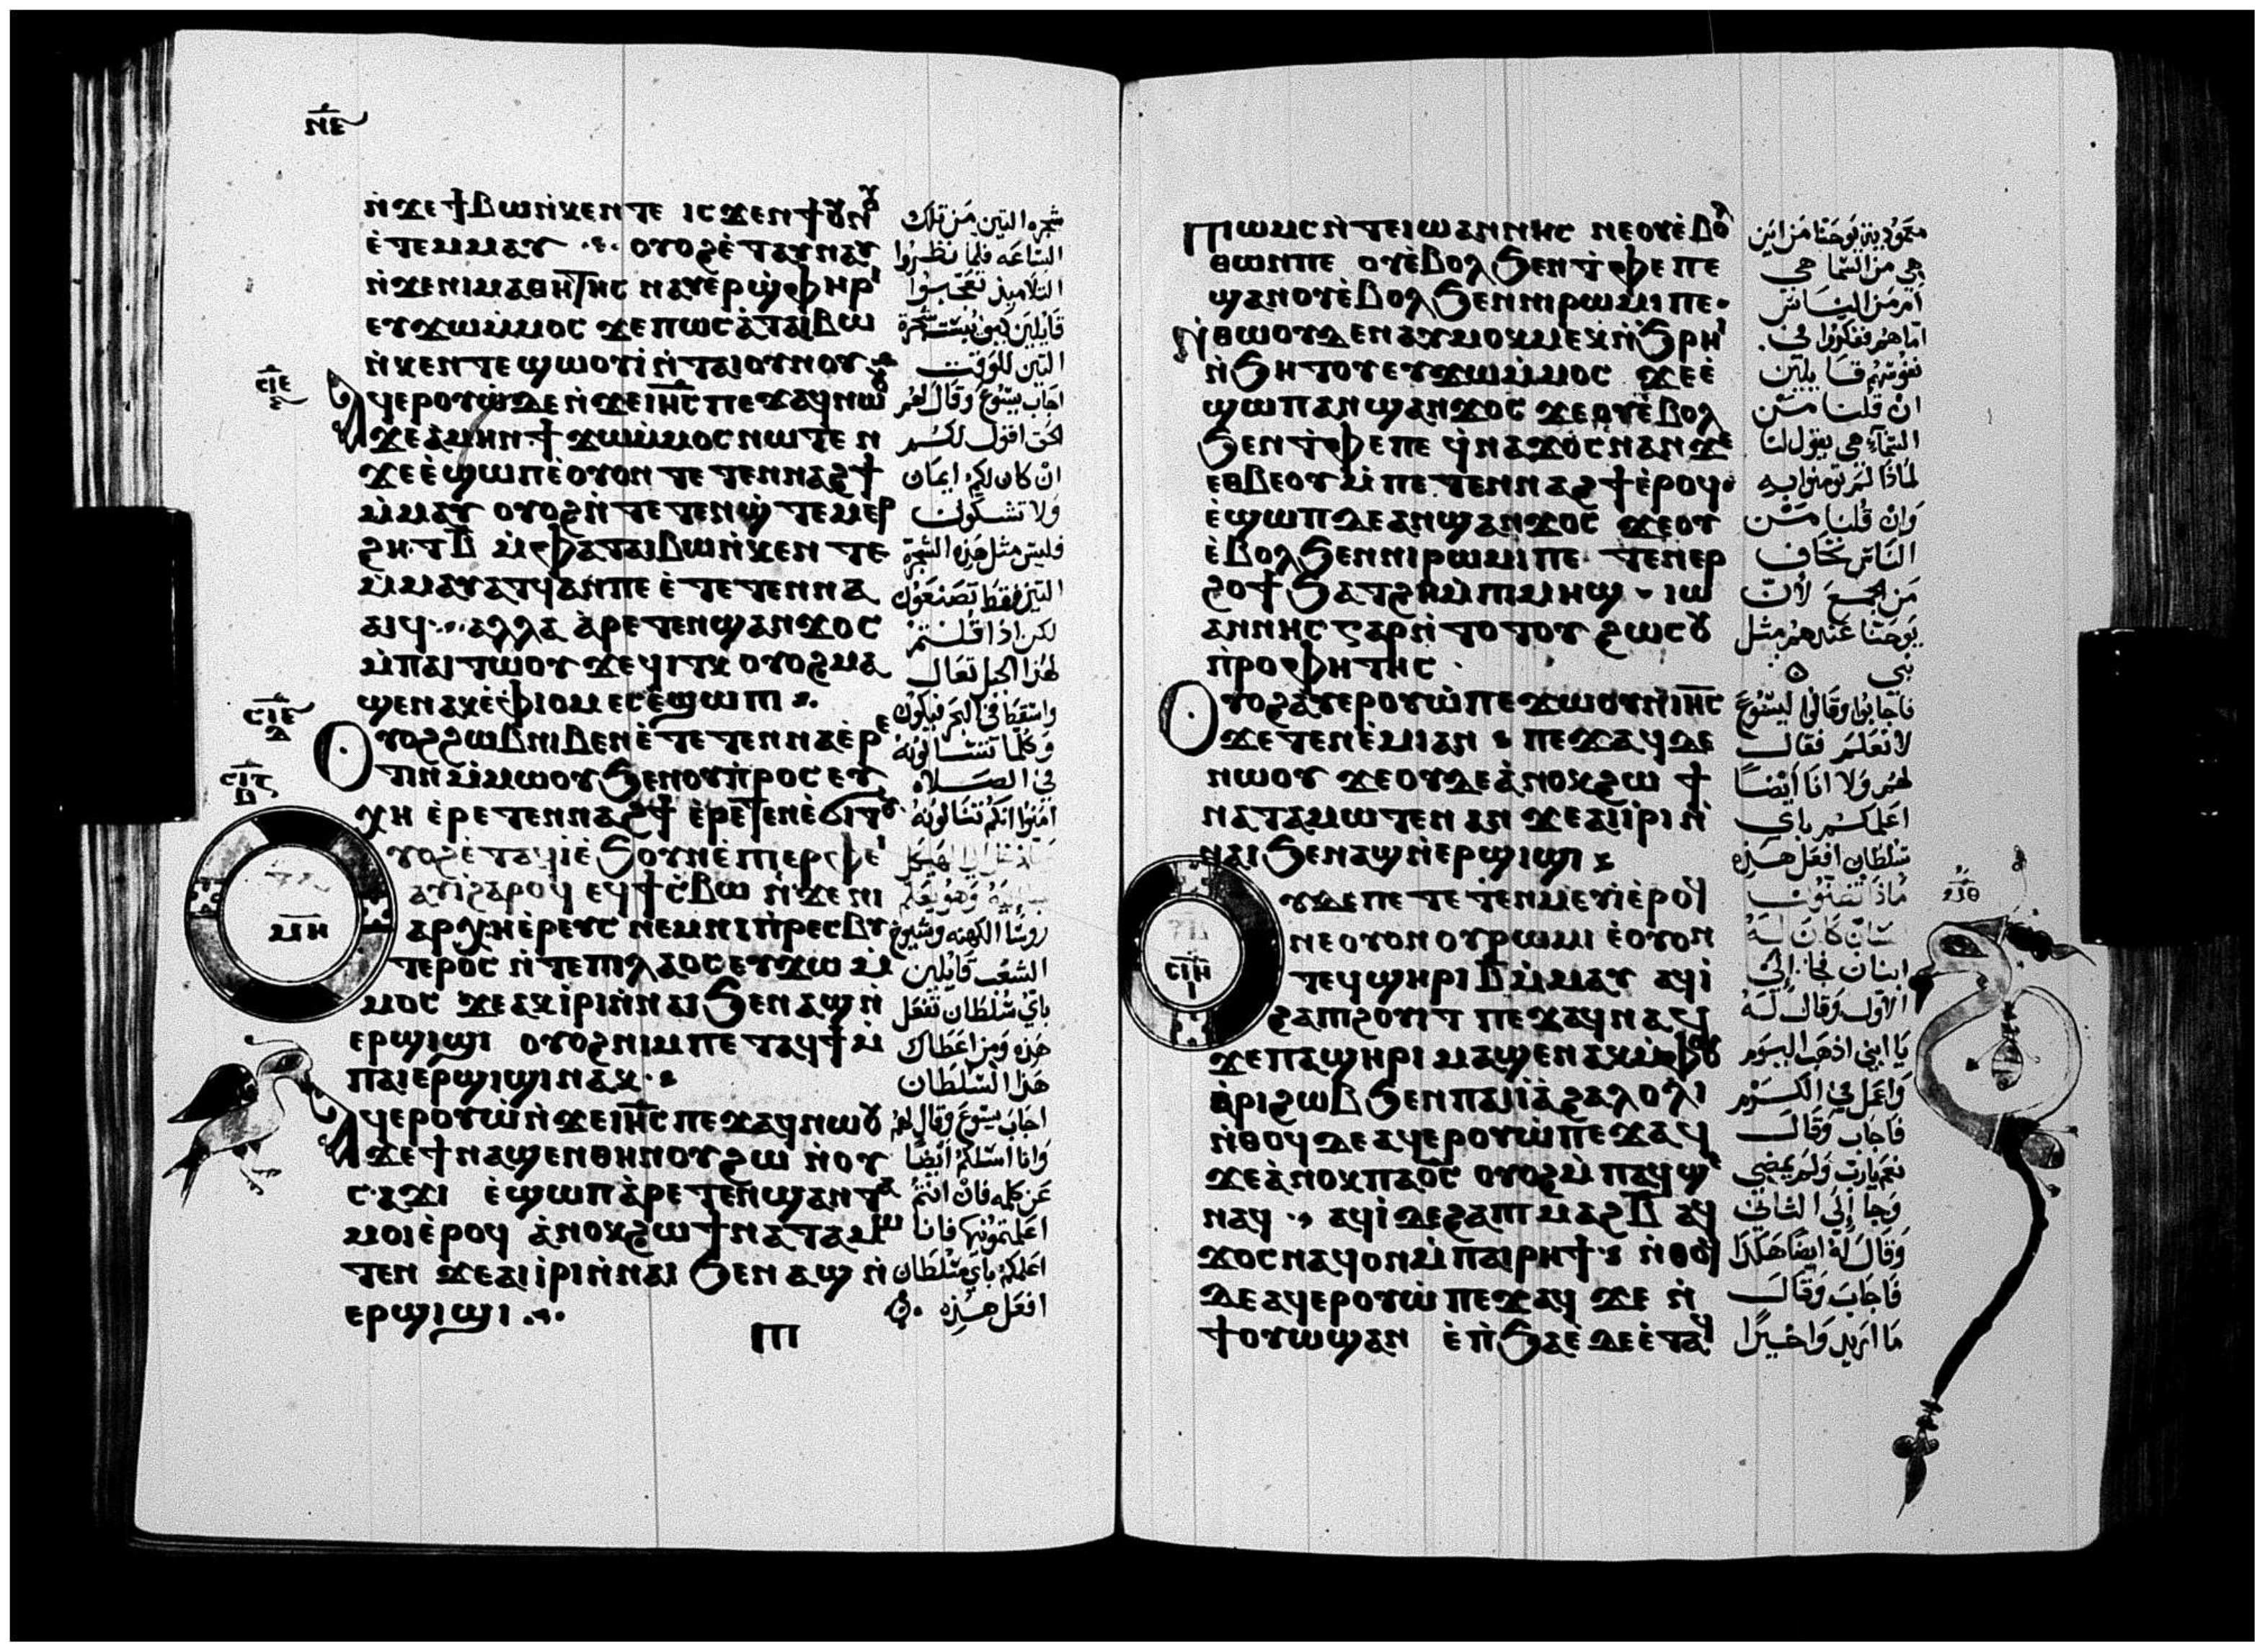 ⲛⲉ
ⲛ̀ϫⲉϯⲃⲱⲛ̀ⲕⲉⲛⲧⲉ ⲓⲥϫⲉⲛϯⲟⲩⲛⲟⲩ
ⲉ̀ⲧⲉⲙⲙⲁⲩ ⲟⲩⲟϩⲉ̀ⲧⲁⲩⲛⲁⲩ
ⲛ̀ϫⲉⲛⲓⲙⲁⲑⲏⲧⲏⲥ ⲛⲁⲩⲉⲣϣ̀ⲫⲏⲣⲓ
ⲉⲩϫⲱⲙ̀ⲙⲟⲥ ϫⲉⲡⲱⲥⲁ̀ⲧⲁⲓⲃⲱ
ⲛ̀ⲕⲉⲛⲧⲉ ϣⲱⲟⲩⲓ̀ ⲛ̀ⲧⲁⲓⲟⲩⲛⲟⲩ
ⲥⲓⲉ
ⲁϥⲉⲣⲟⲩⲱ̀ⲇⲉ ⲛ̀ϫⲉⲓⲏⲥ ⲡⲉϫⲁϥⲛⲱⲟⲩ
ϫⲉⲁⲙⲏⲛ ϯϫⲱⲙ̀ⲙⲟⲥ ⲛⲱⲧⲉⲛ
ϫⲉⲉ̀ϣⲱⲡⲉ̀ⲟⲩⲟⲛ ⲧⲉⲧⲉⲛⲛⲁϩϯ
ⲙ̀ⲙⲁⲩ ⲟⲩⲟϩⲛ̀ⲧⲉⲧⲉⲛϣ̀ⲧⲉⲙⲉⲣ
ϩⲏⲧⲃ̅ ⲙ̀ⲫⲁⲧⲁⲓⲃⲱⲛ̀ⲕⲉⲛⲧⲉ
ⲙ̀ⲙⲁⲩⲁⲧϥⲁⲛⲡⲉ ⲉ̀ⲧⲉⲧⲉⲛⲛⲁ
ⲁⲓϥ ⲁⲗⲗⲁ ⲁ̀ⲣⲉⲧⲉⲛϣⲁⲛϫⲟⲥ
ⲙ̀ⲡⲁⲓⲧⲱⲟⲩ ϫⲉϥⲓⲧⲕ ⲟⲩⲟϩⲙⲁ
ϣⲉⲛⲁⲕⲉ̀ⲫⲓⲟⲙ ⲉⲥⲉ̀ϣⲱⲡⲓ
ⲥⲓⲉ
ⲇ
ⲟⲩⲟϩϩⲱⲃⲛⲓⲃⲉⲛⲉ̀ⲧⲉⲧⲉⲛⲛⲁⲉ̀ⲣⲉ
ⲧⲓⲛⲙ̀ⲙⲱⲟⲩ ϧⲉⲛⲟⲩⲡ̀ⲣⲟⲥⲉⲩ
ⲥⲓⲋ
ⲃ
ⲭⲏ ⲉⲣⲉⲧⲉⲛⲛⲁϩϯ ⲉ̀ⲣⲉⲧⲉⲛⲉ̀ϭⲓⲧⲟⲩ
ⲟⲩⲟϩⲉ̀ⲧⲁϥⲓ̀ⲉ̀ϧⲟⲩⲛⲉ̀ⲡⲓⲉⲣⲫⲉⲓ
ⲙⲏ
ⲁⲩⲓ̀ϩⲁⲣⲟϥ ⲉϥϯⲥ̀ⲃⲱ ⲛ̀ϫⲉⲛⲓ
ⲁⲣⲭⲏⲉ̀ⲣⲉⲩⲥ ⲛⲉⲙⲛⲓⲡ̀ⲣⲉⲥⲃⲩ
ⲧⲉⲣⲟⲥ ⲛ̀ⲧⲉⲡⲓⲗⲁⲟⲥ ⲉⲩϫⲱⲙ̀
ⲙⲟⲥ ϫⲉⲁⲕⲓ̀ⲣⲓⲛ̀ⲛⲁⲓ ϧⲉⲛⲁϣⲛ̀
ⲉⲣϣⲓϣⲓ ⲟⲩⲟϩⲛⲓⲙⲡⲉⲧⲁϥϯⲙ̀
ⲡⲁⲓⲉⲣϣⲓϣⲓⲛⲁⲕ
ⲁϥⲉⲣⲟⲩⲱ̀ⲛ̀ϫⲉⲓⲏⲥ ⲡⲉϫⲁϥⲛⲱⲟⲩ
ϫⲉϯⲛⲁϣⲉⲛⲑⲏⲛⲟⲩϩⲱ ⲛ̀ⲟⲩ
ⲥⲁϫⲓ ⲉ̀ϣⲱⲡⲁ̀ⲣⲉⲧⲉⲛϣⲁⲛⲧⲁ
ⲙⲟⲓⲉ̀ⲣⲟϥ ⲁ̀ⲛⲟⲕϩⲱ ϯⲛⲁⲧⲁⲙⲱ
ⲧⲉⲛ ϫⲉⲁⲓⲓ̀ⲣⲓⲛ̀ⲛⲁⲓ ϧⲉⲛⲁϣⲛ̀
ⲉⲣϣⲓϣⲓ
ⲡⲓ
شجره التين من تلك
الساعه فلما نظروا
التلاميذ تعجبوا
قايلين كيف يبست شجرة
التين للوقت
اجاب يسوع وقال لهم
الحق اقول لكم
ان كان لكم ايمان
ولا تشكون
فليس مثل هذه الشجرة
التين فقط تصنعون
لكن اذا قلتم
لهذا الجبل تعال
واسقط في البحر فيكون
وكلما تسالونه
في الصلاه
امنوا انكم تنالونه
وهو يعلم
روسا الكهنه وشيوخ
الشعب قايلين
باي سلطان تفعل
هذه ومن اعطاك
هذا السلطان
اجاب يسوع وقال لهم
وانا اسلكم ايضا
عن كله فان انتم
اعلمتمونيها فانا
اعلمكم باي سلطان
افعل هذه
ⲡⲓⲱⲙⲥ ⲛ̀ⲧⲉⲓⲱⲁⲛⲛⲏⲥ ⲛⲉⲟⲩⲉ̀ⲃⲟⲗ
ⲑⲱⲛⲡⲉ ⲟⲩⲉ̀ⲃⲟⲗϧⲉⲛⲧ̀ⲫⲉⲡⲉ
ϣⲁⲛⲟⲩⲉ̀ⲃⲟⲗϧⲉⲛⲛⲓⲣⲱⲙⲓⲡⲉ
ⲛ̀ⲑⲱⲟⲩⲇⲉ ⲛⲁⲩⲙⲟⲕⲙⲉⲕⲛ̀ϧⲣⲏⲓ
ⲛ̀ϧⲏⲧⲟⲩ ⲉⲩϫⲱⲙ̀ⲙⲟⲥ ϫⲉⲉ̀
ϣⲱⲡⲁⲛϣⲁⲛϫⲟⲥ ϫⲉⲟⲩⲉ̀ⲃⲟⲗ
ϧⲉⲛⲧ̀ⲫⲉⲡⲉ ϥⲛⲁϫⲟⲥⲛⲁⲛ ϫⲉ
ⲉⲑⲃⲉⲟⲩⲙ̀ⲡⲉⲧⲉⲛⲛⲁϩϯⲉ̀ⲣⲟϥ
ⲉ̀ϣⲱⲡⲇⲉⲁⲛϣⲁⲛϫⲟⲥ ϫⲉⲟⲩ
ⲉ̀ⲃⲟⲗϧⲉⲛⲛⲓⲣⲱⲙⲓⲡⲉ ⲧⲉⲛⲉⲣ
ϩⲟϯ ϧⲁⲧϩⲏⲙ̀ⲡⲓⲙⲏϣ ⲓⲱ
ⲁⲛⲛⲏⲥ ⲅⲁⲣⲛ̀ⲧⲟⲧⲟⲩ ϩⲱⲥⲟⲩ
ⲡ̀ⲣⲟⲫⲏⲧⲏⲥ
ⲟⲩⲟϩⲁⲩⲉⲣⲟⲩⲱ̀ⲡⲉϫⲱⲟⲩⲛ̀ⲓⲏⲥ
ϫⲉⲧⲉⲛⲉ̀ⲙⲓⲁⲛ ⲡⲉϫⲁϥⲇⲉ
ⲛⲱⲟⲩ ϫⲉⲟⲩⲇⲉⲁ̀ⲛⲟⲕϩⲱ ϯ
ⲛⲁⲧⲁⲙⲱⲧⲉⲛ ⲁⲛ ϫⲉⲁⲓⲓ̀ⲣⲓⲛ̀
ⲛⲁⲓ ϧⲉⲛⲁϣⲛ̀ⲉⲣϣⲓϣⲓ
ⲥⲓⲏ
ⲓ
ⲟⲩⲇⲉⲡⲉⲧⲉⲧⲉⲛⲙⲉⲩⲓ̀ⲉ̀ⲣⲟϥ
ⲛⲉⲟⲩⲟⲛⲟⲩⲣⲱⲙⲓ ⲉ̀ⲟⲩⲟⲛ
ⲧⲉϥϣⲏⲣⲓⲃ̅ⲙ̀ⲙⲁⲩ ⲁϥⲓ̀
ϩⲁⲡⲓϩⲟⲩⲓⲧ ⲡⲉϫⲁϥⲛⲁϥ
ϫⲉⲡⲁϣⲏⲣⲓ ⲙⲁϣⲉⲛⲁⲕⲙ̀ⲫⲟⲟⲩ
ⲁ̀ⲣⲓϩⲱⲃ ϧⲉⲛⲡⲁⲓⲁ̀ϩⲁⲗⲟⲗⲓ
ⲛ̀ⲑⲟϥⲇⲉ ⲁϥⲉⲣⲟⲩⲱ̀ⲡⲉϫⲁϥ
ϫⲉⲁ̀ⲛⲟⲕⲡⲁⲟ̅ⲥ̅ ⲟⲩⲟϩⲙ̀ⲡⲁϥϣⲉ
ⲛⲁϥ ⲁϥⲓ̀ⲇⲉϩⲁⲡⲓⲙⲁϩⲃ̅ ⲁϥ
ϫⲟⲥⲛⲁϥⲟⲛⲙ̀ⲡⲁⲓⲣⲏϯ ⲛ̀ⲑⲟϥ
ⲇⲉ ⲁϥⲉⲣⲟⲩⲱ̀ ⲡⲉϫⲁϥ ϫⲉ ⲛ̀
ϯⲟⲩⲱϣⲁⲛ ⲉ̀ⲡ̀ϧⲁⲉ̀ ⲇⲉⲉ̀ⲧⲁϥ
معموديه يوحنا من اين
هي من السما هي
ام من الناس
اما هم ففكروا في
نفوسهم قايلين
ان قلنا من
السماء هي يقول لنا
لماذا لم تومنوا به
وان قلنا من
الناس نخاف
من الجمع لان
يوحنا عندهم مثل
نبي
فاجابوا وقالوا ليسوع
لا نعلم فقال
لهم ولا انا ايضا
اعلمكم باي
سلطان افعل هذه
ماذا تظنون
انسان كان له
ابنان فجا الى
الاول وقال له
يا ابني اذهب اليوم
واعمل في الكرم
فاجاب وقال
نعم يارب ولم يمضي
وجا الى الثاني
وقال له ايضا هكذا
فاجاب وقال
ما اريد واخيرا
ⲙⲑ